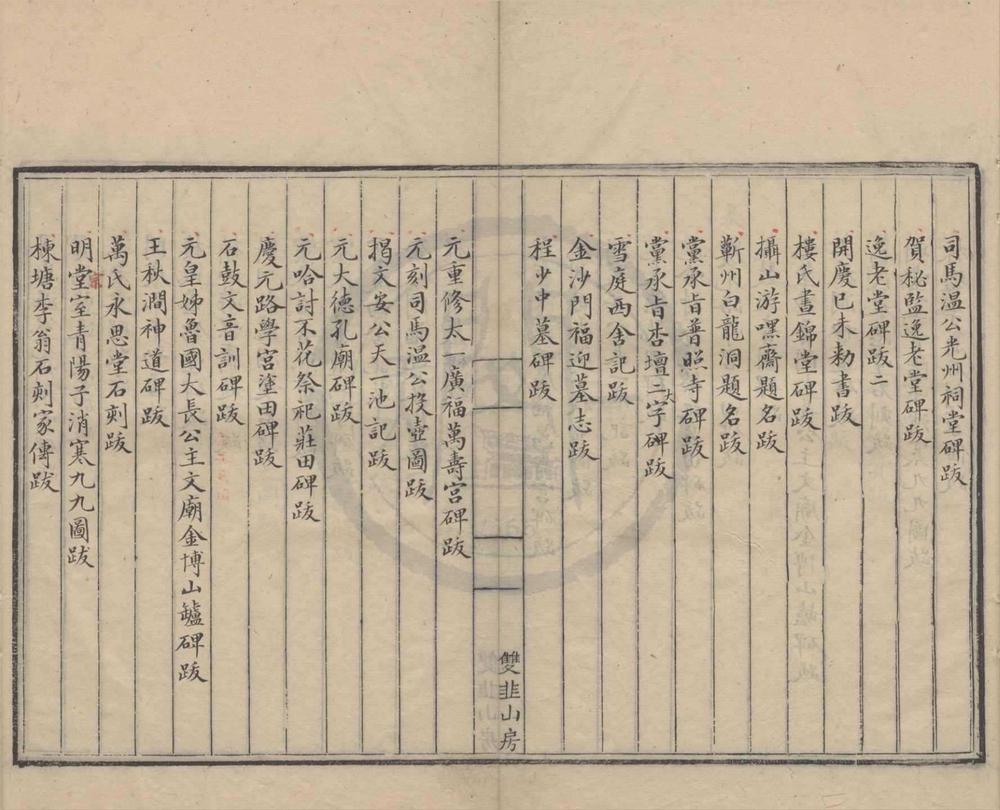 司馬温公光州祠堂碑跋
賀秘監逸老堂碑跋
逸老堂碑跋二
開慶己未勅書跋
樓氏晝錦堂碑跋
攝山游嘿齋題名跋
蘄州白龍洞題名跋
黨承旨普照寺碑跋
黨承旨杏壇二大字碑跋
雪庭西舍記跋
金沙門福迎墓志跋
程少中墓碑跋
雙韭山房
元重修太一廣福萬壽宮碑跋
元刻司馬温公投壺圖跋
揭文安公天一池記跋
元大德孔廟碑跋
元哈討不花祭祀莊田碑跋
慶元路學宮塗田碑跋
石鼓文音訓碑跋
元皇姊魯國大長公主文廟金博山鑪碑跋
王秋澗神道碑跋
萬氏永思堂石刻跋
明堂室青陽子消寒九九圖跋
宗
棟塘李翁石刻家傳跋